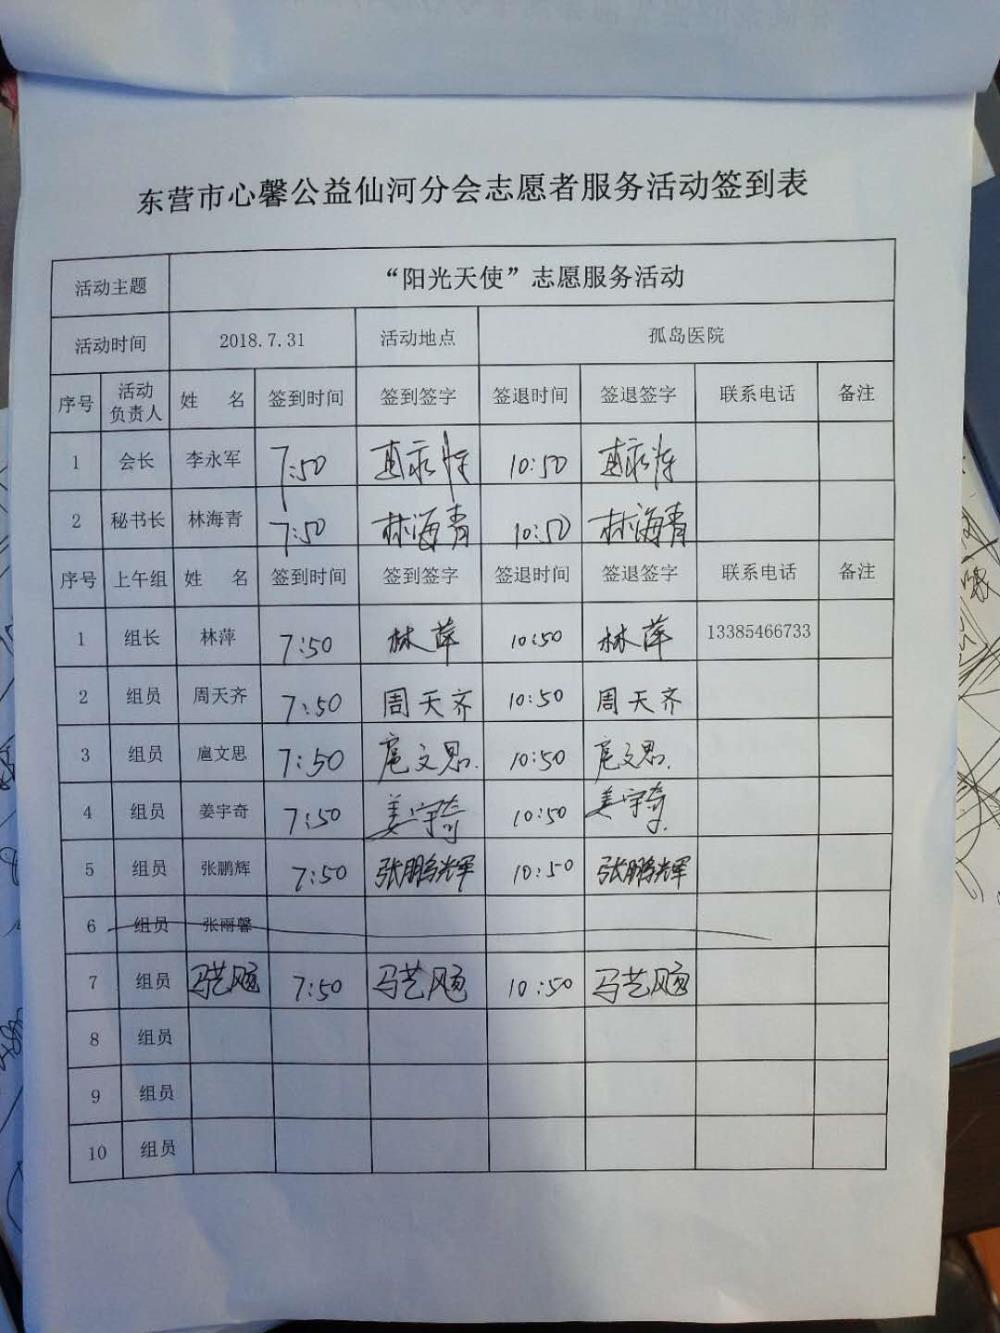 东营市心馨公益仙河分会志愿者服务活动签到表
活动主题 “阳光天使”志愿服务活动
活动时间 2018.7.31 活动地点 孤岛医院
序号 活动负责人 姓 名 签到时间 签到签字 签退时间 签退签字 联系电话 备注
1 会长 李永军 7:50 10:50
2 秘书长 林海青 7:50 林海青 10:50 林海青
序号 上午组 姓 名 签到时间 签到签字 签退时间 签退签字 联系电话 备注
1 组长 林萍 7:50 林萍 10:50 林萍 13385466733
2 组员 周天齐 7:50 周天齐 10:50 周天齐
3 组员 扈文思 7:50 扈文思. 10:50 扈文思.
4 组员 姜宇奇 7:50 姜宇奇 10:50 姜宇奇.
5 组员 张鹏辉 7:50 张鹏辉 10:50 张鹏辉
6 组员 张雨馨
7 组员 马艺飏 7:50 马艺飏 10:50 马艺飏
8 组员
9 组员
10 组员